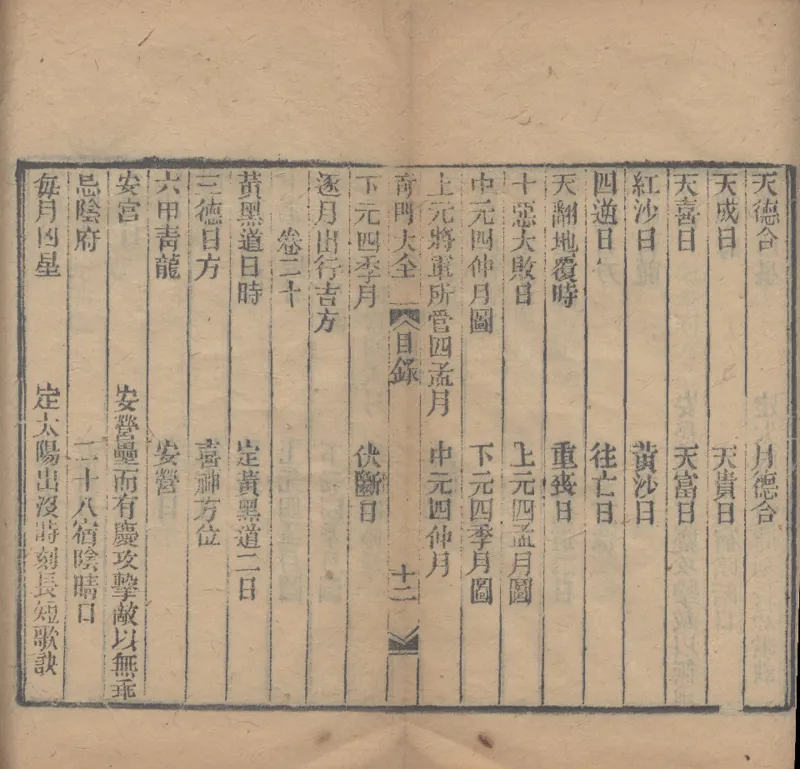 天德合 月德合
天成日 天貴日
天喜日 天富日
紅沙日 黃沙日
四遊日 往亡日
天翻地覆時 重喪日
十惡大敗日 上元四孟月圖
中元四仲月圖 下元四季月圖
上元將軍所管四孟月 中元四仲月
奇門大全 目錄 十二
下元四季月 伏斷日
逐月出行吉方
卷二十
黃黑道日時 定黃黑道二日
三德日方 喜神方位
六甲青龍 安營
安宮 安營壘而有慶攻擊敵以無乖
忌陰府 二十八宿陰晴日
每月凶星 定太陽出沒時刻長短歌訣